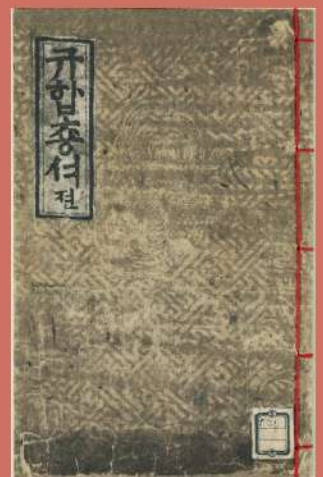 규합총셔 젼